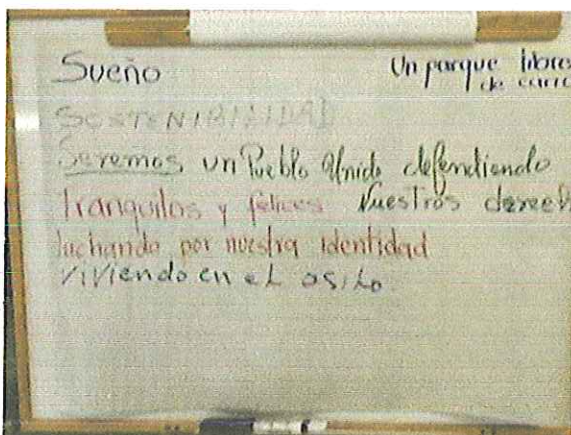 Sueño
Un parque libre
de carro
SOSTENIBILIDAD
Seremos un Pueblo Unido defendiendo
tranquilos y felices Nuestros derech
luchando por nuestra identidad
viviendo en el asilo